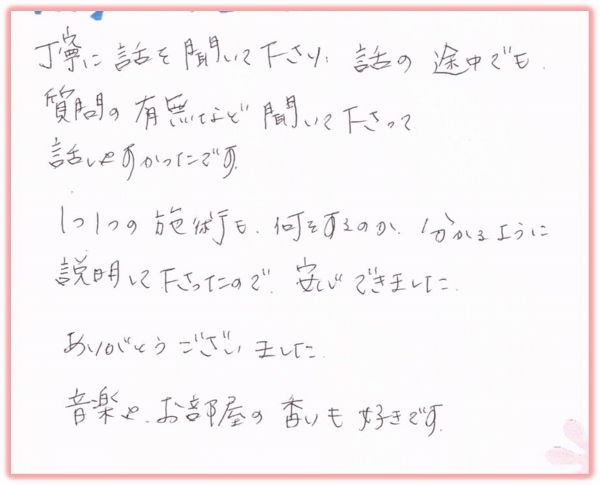 丁寧に話を聞いて下さり、話の途中でも、
質問の有無など聞いて下さって
話しやすかったです。
1つ1つの施術も、何をするのか、分かるように
説明して下さったので、安心できました。
ありがとうございました。
音楽や、お部屋の香りも好きです。